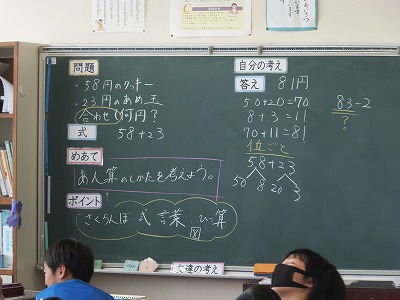 問題
・58円のクッキー
・23円のあめ玉
合わせて何円?
式 58+23
めあて
あん算のしかたを考えよう。
ポイント
さくらんぼ 式 言葉 ひっ算
図
自分の考え
答え 81円
50+20=70
8+3=11
70+11=81
位ごと
58+23
50 8 20 3
83-2
?
友達の考え